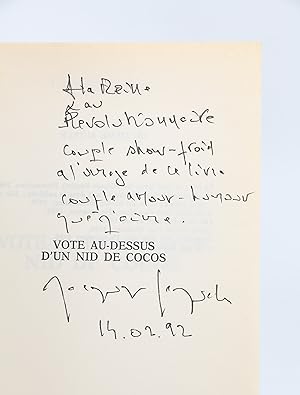 A la Reine
& au
Révolutionnaire
couple show-froid
à l'image de ce livre
couple amour-humour
VOTE AU-DESSUS
D'UN NID DE COCOS
14.02.92